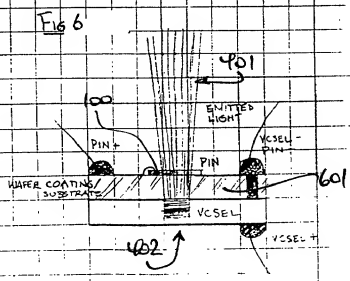 FIG 6
401
100
EMITTED
LIGHT
PIN+
PIN
VCSEL-
PIN-
WAFER COATING/
SUBSTRATE
601
VCSEL
402
VCSEL+